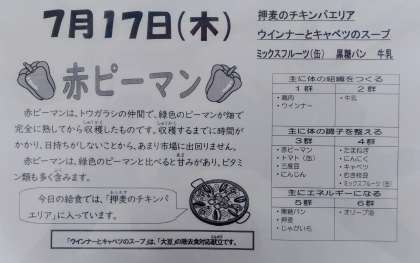 7月17日(木)
赤ピーマン
赤ピーマンは、トウガラシの仲間で、緑色のピーマンが畑で
完全に熟してから収穫したものです。収穫するまでに時間が
かかり、日持ちがしないことから、あまり市場に出回りません。
赤ピーマンは、緑色のピーマンと比べると甘みがあり、ビタミ
ン類も多く含みます。
今日の給食では、「押麦のチキンパ
エリア」に入っています。
「ウインナーとキャベツのスープ」は、「大豆」の除去食対応献立です。
押麦のチキンパエリア
ウインナーとキャベツのスープ
ミックスフルーツ(缶) 黒糖パン 牛乳
主に体の組織をつくる
1群 2群
・鶏肉 ・牛乳
・ウインナー
主に体の調子を整える
3群 4群
・赤ピーマン ・たまねぎ
・トマト(缶) ・にんにく
・三度豆 ・キャベツ
・にんじん ・むき枝豆
・ミックスフルーツ(缶)
主にエネルギーになる
5群 6群
・黒糖パン ・オリーブ油
・押麦
・じゃがいも